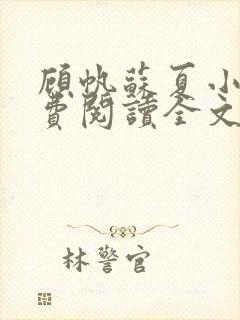 顾帆蘇夏小
費閱讀全文
林警官